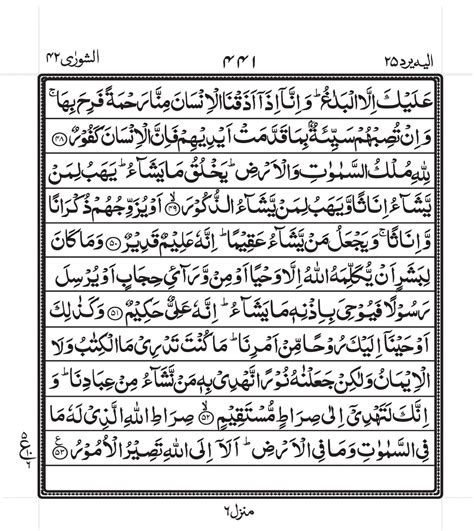 الیه یرد ۲۵ ۴۴۱ الشورٰی ۴۲
عَلَيْكَ اِلَّا الْبَلٰغُ ؕ وَاِنَّاۤ اِذَاۤ اَذَقْنَا الْاِنْسَانَ مِنَّا رَحْمَةً فَرِحَ بِهَا ۚ
وَاِنْ تُصِبْهُمْ سَيِّئَةٌۢ بِمَا قَدَّمَتْ اَيْدِيْهِمْ فَاِنَّ الْاِنْسَانَ كَفُوْرٌ ۝۴۸
لِلّٰهِ مُلْكُ السَّمٰوٰتِ وَالْاَرْضِ ؕ يَخْلُقُ مَا يَشَآءُ ؕ يَهَبُ لِمَنْ
يَّشَآءُ اِنَاثًا وَّيَهَبُ لِمَنْ يَّشَآءُ الذُّكُوْرَ ۝۴۹ۙ اَوْ يُزَوِّجُهُمْ ذُكْرَانًا
وَّاِنَاثًا ۚ وَيَجْعَلُ مَنْ يَّشَآءُ عَقِيْمًا ؕ اِنَّهٗ عَلِيْمٌ قَدِيْرٌ ۝۵۰ وَمَا كَانَ
لِبَشَرٍ اَنْ يُّكَلِّمَهُ اللّٰهُ اِلَّا وَحْيًا اَوْ مِنْ وَّرَآئِ حِجَابٍ اَوْ يُرْسِلَ
رَسُوْلًا فَيُوْحِيَ بِاِذْنِهٖ مَا يَشَآءُ ؕ اِنَّهٗ عَلِيٌّ حَكِيْمٌ ۝۵۱ وَكَذٰلِكَ
اَوْحَيْنَاۤ اِلَيْكَ رُوْحًا مِّنْ اَمْرِنَا ؕ مَا كُنْتَ تَدْرِيْ مَا الْكِتٰبُ وَلَا
الْاِيْمَانُ وَلٰكِنْ جَعَلْنٰهُ نُوْرًا نَّهْدِيْ بِهٖ مَنْ نَّشَآءُ مِنْ عِبَادِنَا ؕ وَ
اِنَّكَ لَتَهْدِيْۤ اِلٰى صِرَاطٍ مُّسْتَقِيْمٍ ۝۵۲ۙ صِرَاطِ اللّٰهِ الَّذِيْ لَهٗ مَا
فِي السَّمٰوٰتِ وَمَا فِي الْاَرْضِ ؕ اَلَاۤ اِلَى اللّٰهِ تَصِيْرُ الْاُمُوْرُ ۝۵۳
منزل ۶